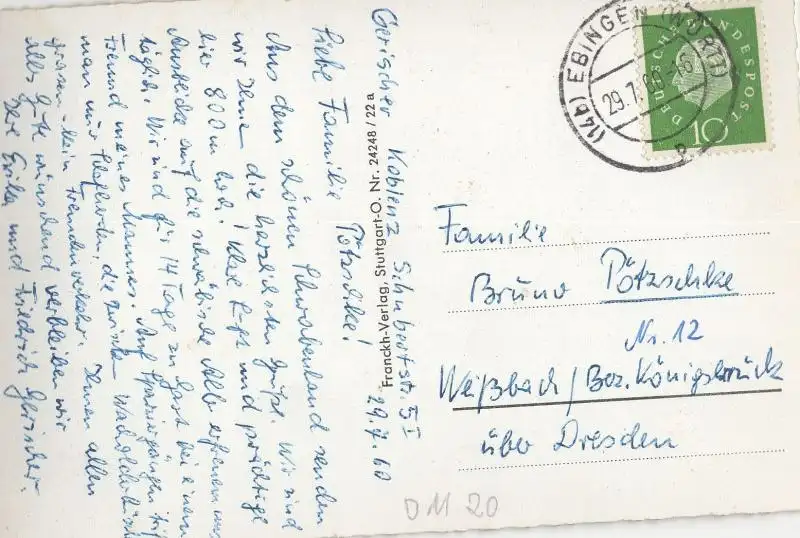 Gerischer Koblenz Schubertstr. 5 I
29.7.60
Liebe Familie Pötzschke!
Aus dem schönen Schwabenland senden
wir Ihnen die herzlichsten Grüße. Wir sind
hier 800 m hoch. Klare Luft und prächtige
Ausblicke auf die schwäbische Alb erfreuen uns
täglich. Wir sind für 14 Tage zu Gast bei einem
Freund meines Mannes. Auf Spaziergängen trifft
man nur Schafherden, die zwischen Wacholderbüschen
grasen - kein Fremdenverkehr. Ihnen allen
alles Gute wünschend verbleiben wir
Ihre Erika und Friedrich Gerischer.
Franckh-Verlag, Stuttgart-O. Nr. 24248 / 22 a
(14b) EBINGEN (WÜRTT)
29.7.60-16
DEUTSCHE BUNDESPOST
10
Familie
Bruno Pötzschke
Nr. 12
Weißbach / Bez. Königsbrück
über Dresden
D 11 20